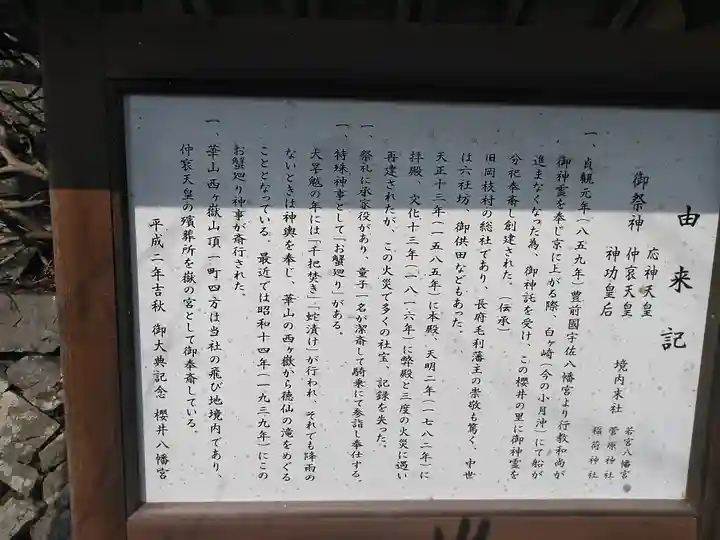 由来記
御祭神 応神天皇
仲哀天皇
神功皇后
境内末社 若宮八幡宮
菅原神社
稲荷神社
一、貞観元年(八五九年)豊前國宇佐八幡宮より行教和尚が
御神霊を奉じ京に上がる際、白ヶ崎(今の小月沖)にて船が
進まなくなった為、御神託を受け、この櫻井の里に御神霊を
分祀奉斎し創建された。(伝承)
旧岡枝村の総社であり、長府毛利藩主の崇敬も篤く、中世
は六社坊、御供田などもあった。
天正十三年(一五八五年)に本殿、天明二年(一七八二年)に
拝殿、文化十三年(一八一六年)に弊殿と三度の火災に遇い
再建されたが、この火災で多くの社宝、記録を失った。
一、祭礼に承家役があり、童子一名が潔斎して騎乗にて参詣し奉仕する。
一、特殊神事として「お蟹廻り」がある。
大旱魃の年には「千把焚き」「蛇漬け」が行われ、それでも降雨の
ないときは神輿を奉じ、華山の西ヶ嶽から徳仙の滝をめぐる
こととなっている。最近では昭和十四年(一九三九年)にこの
お蟹廻り神事が斎行された。
一、華山西ヶ嶽山頂一町四方は当社の飛び地境内であり、
仲哀天皇の殯葬所を嶽の宮として御奉斎している。
平成二年吉秋 御大典記念 櫻井八幡宮